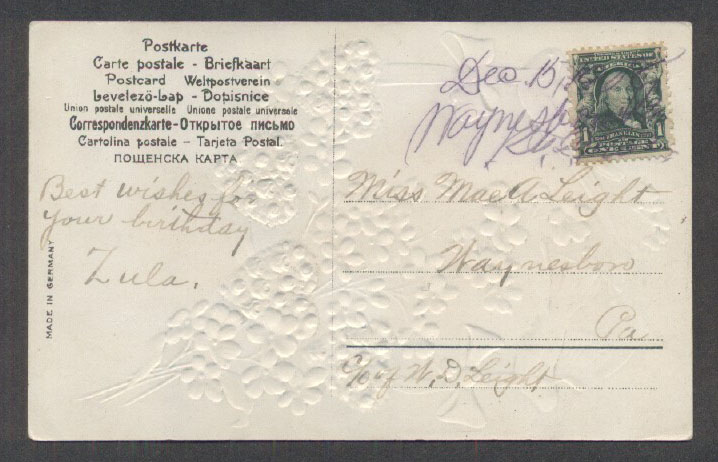 Postkarte
Carte postale - Briefkaart
Postcard Weltpostverein
Levelező-Lap - Dopisnice
Union postale universelle Unione postale universale
Correspondenzkarte-Открытое письмо
Cartolina postale - Tarjeta Postal.
ПОЩЕНСКА КАРТА
Best wishes for
your birthday
Zula.
MADE IN GERMANY
Dec 15,
Waynesboro
UNITED STATES OF
AMERICA
FRANKLIN
1 1
POSTAGE
ONE CENT
Miss Mae A Leight
Waynesboro
Pa
C/o of W. D. Leight